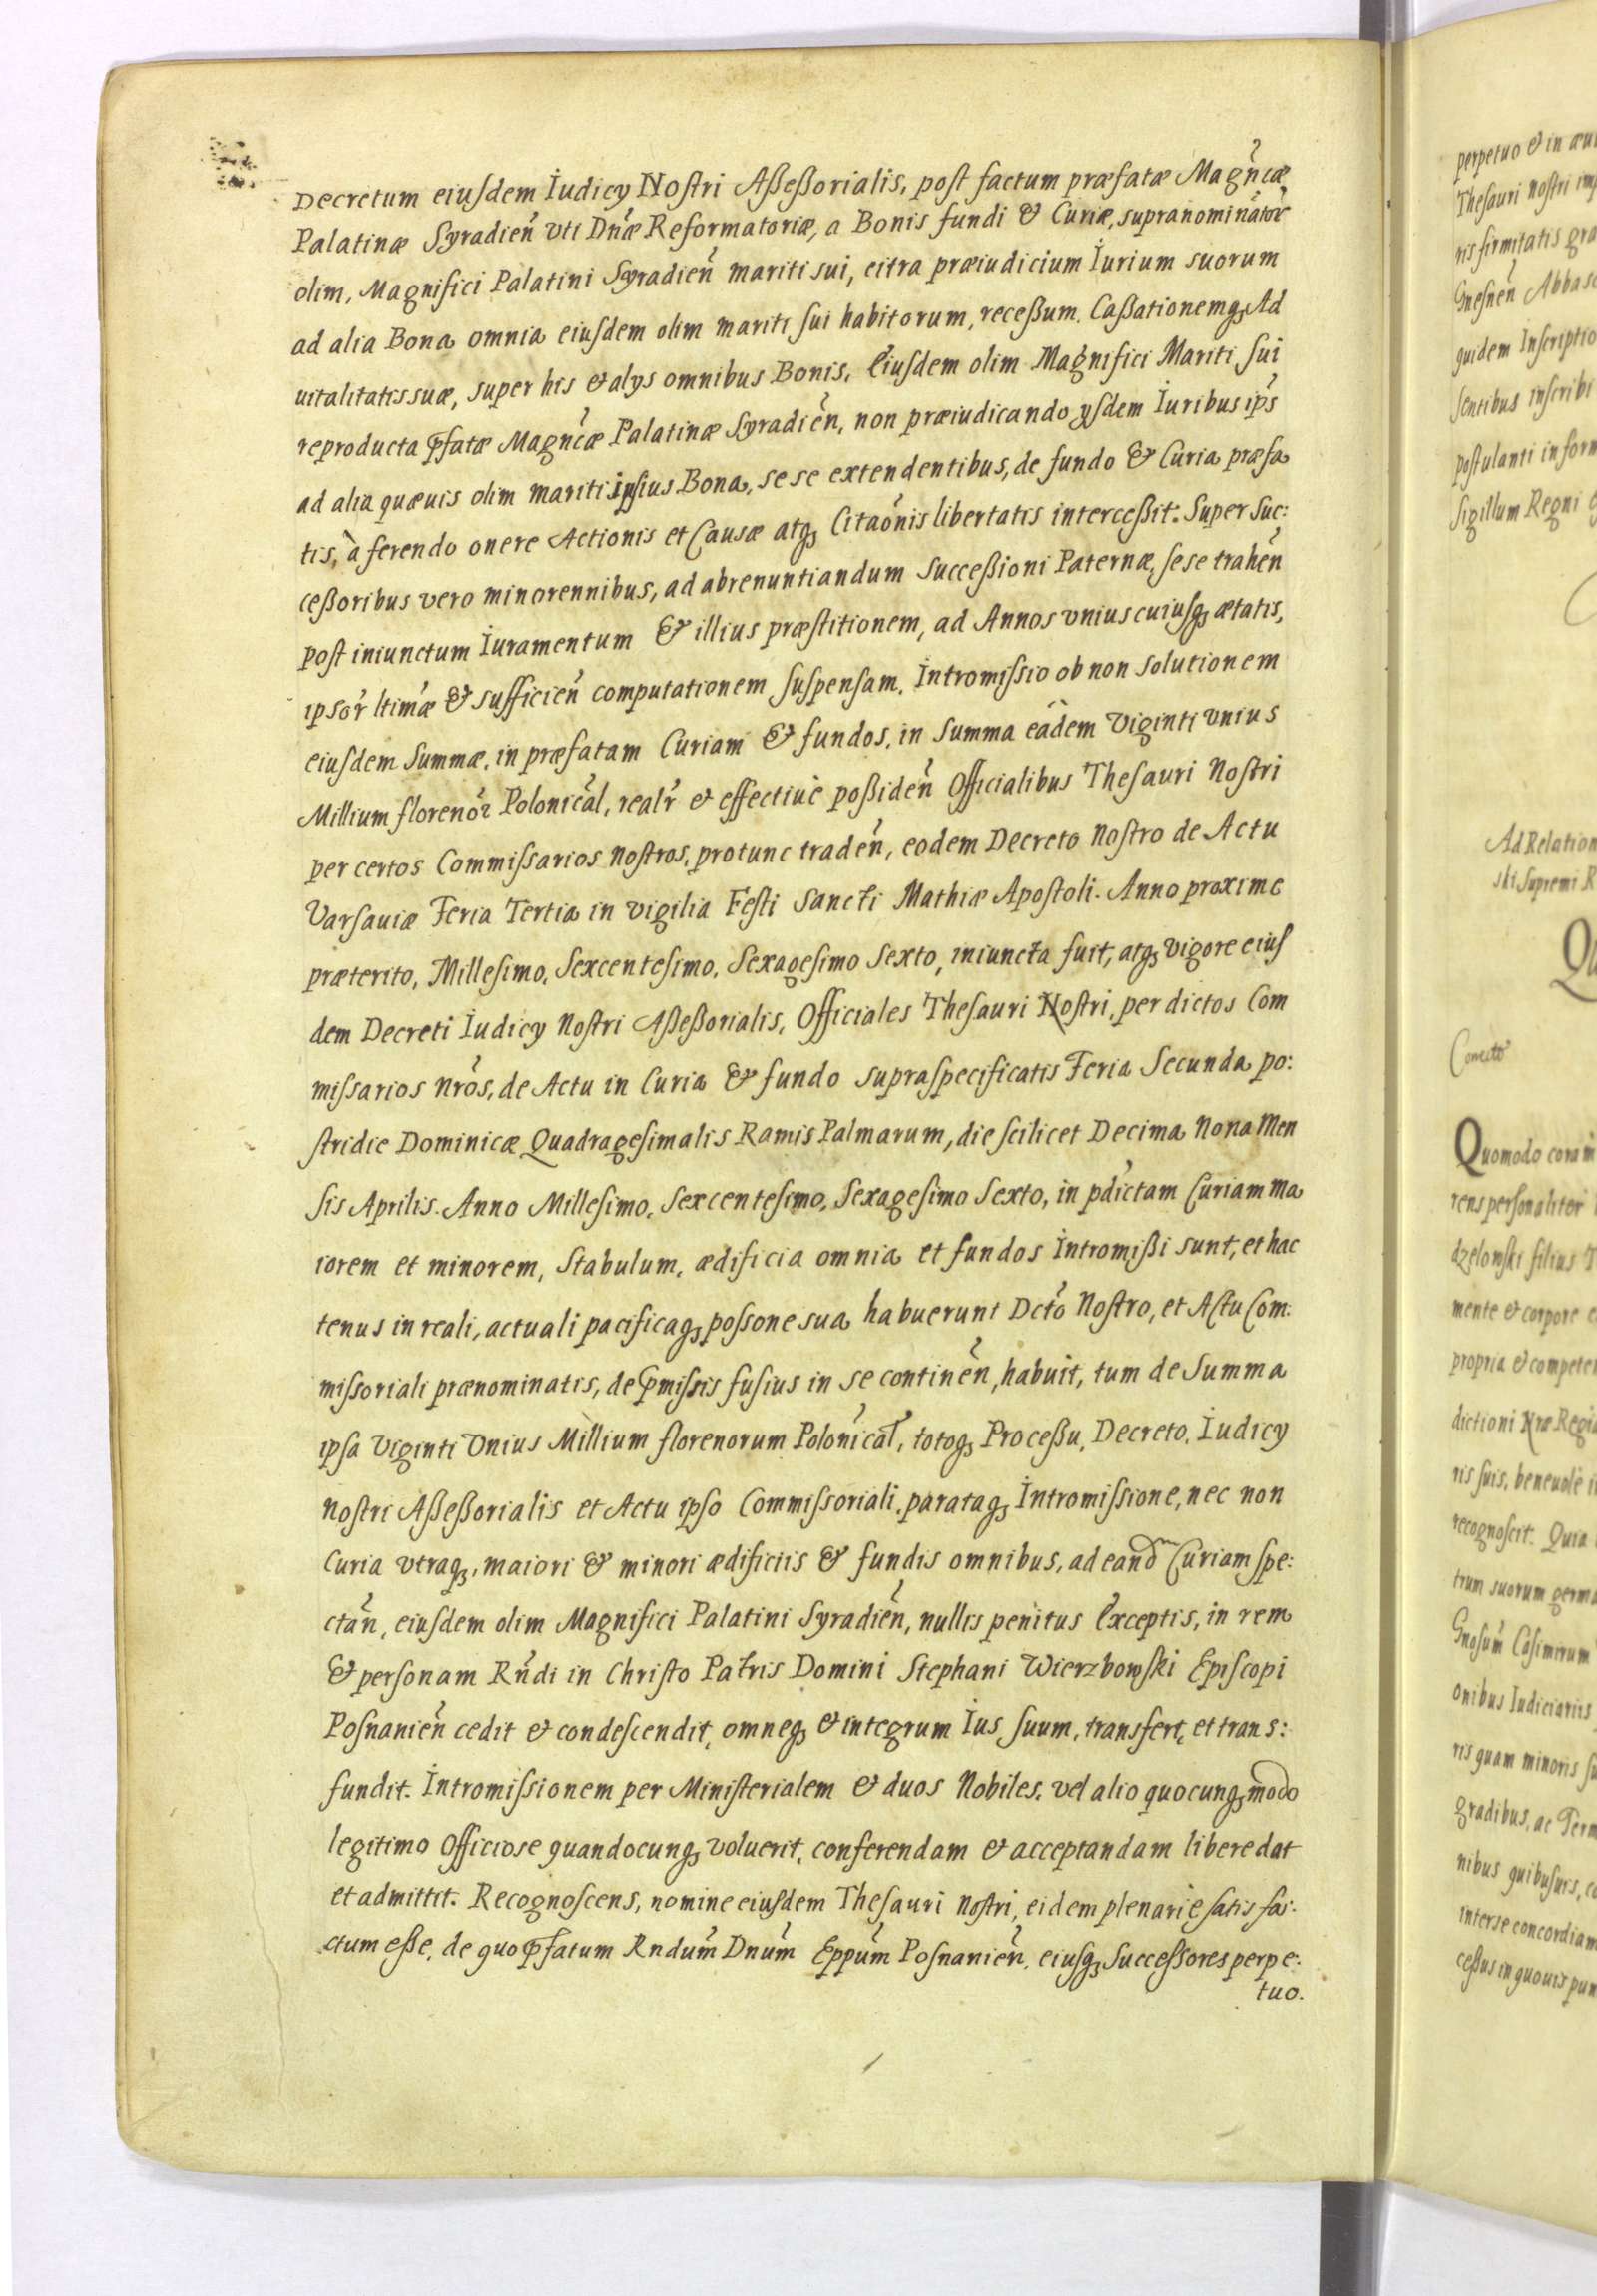 Decretum eiusdem Iudicy Nostri Aßeßorialis, post factum præfatæ Magñcæ
Palatinæ Syradieñ vti Dñæ Reformatoriæ, a Bonis fundi & Curiæ, supranominator
olim, Magnifici Palatini Syradieñ mariti sui, citra præiudicium Iurium suorum
ad alia Bona omnia eiusdem olim mariti sui habitorum, receßum. Caßationemq, Ad
uitalitatis suæ, super his et alys omnibus Bonis, Eiusdem olim Magnifici Mariti sui
reproducta pfatæ Magñcæ Palatinæ Syradieñ, non præiudicando ysdem Iuribus ips
ad alia quæuis olim mariti ipsius Bona, se se extendentibus, de fundo & Curia præfa
tis, à ferendo onere Actionis et Causæ atq, Citaõnis libertatis interceßit. Super Suc:
ceßoribus vero minorennibus, ad abrenuntiandum Succeßioni Paternæ, sese traheñ
post iniunctum Iuramentum & illius præstitionem, ad Annos vniuscuiusq, ætatis,
ipsor ltimæ & sufficieñ computationem suspensam. Intromissio ob non solutionem
eiusdem Summæ, in præfatam Curiam & fundos, in Summa eâdem Viginti vnius
Millium florenor Polonical, realr et effectiuè poßideñ Officialibus Thesauri Nostri
per certos Commissarios nostros, protunc tradeñ, eodem Decreto Nostro de Actu
Varsauiæ Feria Tertia in vigilia Festi Sancti Mathiæ Apostoli. Anno proxime
præterito, Millesimo, Sexcentesimo, Sexagesimo Sexto, iniuncta fuit, atq, vigore eius
dem Decreti Iudicy Nostri Aßeßorialis, Officiales Thesauri Nostri, per dictos Com
missarios nrõs, de Actu in Curia & fundo supraspecificatis Feria Secunda po:
stridie Dominicæ Quadragesimalis Ramis Palmarum, die scilicet Decima Nona Men
sis Aprilis. Anno Millesimo, Sexcentesimo, Sexagesimo Sexto, in pdictam Curiam ma
iorem et minorem, Stabulum, ædificia omnia et fundos Intromißi sunt, et hac
tenus in reali, actuali pacificaq, possone sua habuerunt Dcto Nostro, et Actu Com:
missoriali prænominatis, de pmissis fusius in se contineñ, habuit, tum de Summa
ipsa Viginti Vnius Millium florenorum Polonical, totoq, Proceßu, Decreto, Iudicy
nostri Aßeßorialis et Actu ipso Commissoriali, parataq, Intromissione, nec non
Curia vtraq, maiori & minori ædificiis & fundis omnibus, ad eand Curiam spe:
ctañ, eiusdem olim Magnifici Palatini Syradieñ, nullis penitus Exceptis, in rem
& personam Rñdi in Christo Patris Domini Stephani Wierzbowski Episcopi
Posnanieñ cedit et condescendit, omneq, et integrum Ius suum, transfert, et trans:
fundit. Intromissionem per Ministerialem & duos Nobiles, vel alio quocunq, modo
legitimo Officiose quandocunq, voluerit, conferendam et acceptandam libere dat
et admittit. Recognoscens, nomine eiusdem Thesauri Nostri, eidem plenarie satis fa:
ctum eße, de quo pfatum Rndum Dnum Eppum Posnanieñ, eiusq, Successores perpe:
tuo.
perpetuo & in
Thesauri Nostri
ris firmitatis
Gnesneñ
quidem
sentibus inscribi
postulanti in
Sigillum Regni
Ad
ski Supremi R
Quomodo coram
rens personaliter
dzelowski filius
mente & corpore
propria &
dictioni Nræ
ris suis, beneuole
recognoscit. Quia
trum suorum
Casimirum
onibus Iudiciariis
ris quam minoris
gradibus, ac
nibus quibusuis,
inter se concordiam
ceßus in quouis